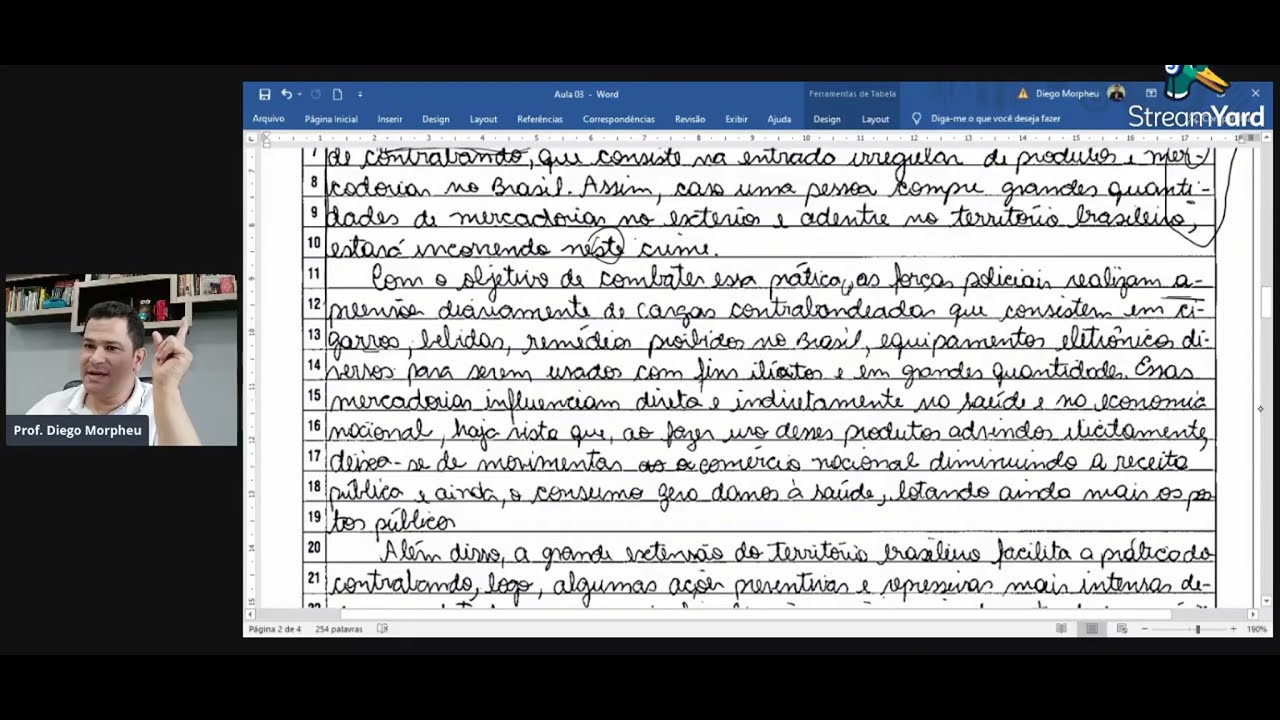 StreamYard
Aula 03 - Word
Ferramentas de Tabela
Diego Morpheu
Arquivo Página Inicial Inserir Design Layout Referências Correspondências Revisão Exibir Ajuda Design Layout Diga-me o que você deseja fazer
7 de contrabando, que consiste na entrada irregular de produtos e mer-
8 cadorias no Brasil. Assim, caso uma pessoa compre grandes quanti-
9 dades de mercadorias no exterior e adentre no território brasileiro,
10 estará incorrendo neste crime.
11 Com o objetivo de combater essa prática, as forças policiais realizam a-
12 preensão diariamente de cargas contrabandeadas que consistem em ci-
13 garros, bebidas, remédios proibidos no Brasil, equipamentos eletrônicos di-
14 versos para serem usados com fins ilícitos e em grandes quantidades. Essas
15 mercadorias influenciam direta e indiretamente na saúde e na economia
16 nacional, haja vista que, ao fazer uso desses produtos advindos ilicitamente,
17 deixa-se de movimentar o comércio nacional diminuindo a receita
18 pública e ainda, o consumo gera danos à saúde, lotando ainda mais os pos
19 tos público
20 Além disso, a grande extensão do território brasileiro facilita a prática do
21 contrabando, logo, algumas ações preventivas e repressivas mais intensas de-
Prof. Diego Morpheu
Página 2 de 4 254 palavras
190%